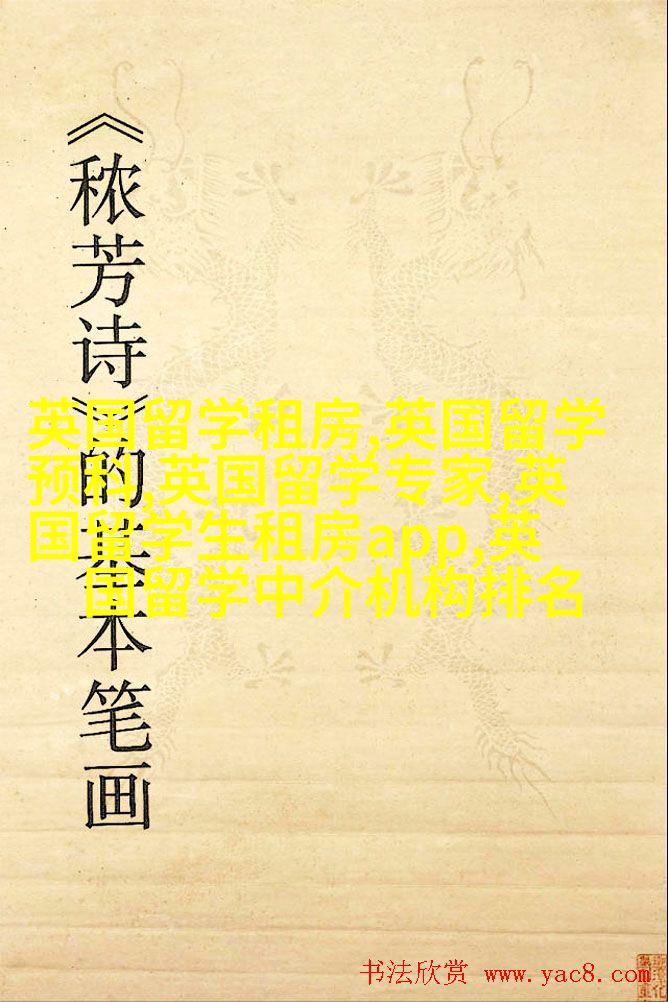 《秾芳诗》的基本笔画
英国留学租房,英国留学
预科,英国留学专家,英
国留学生租房app,英
国留学中介机构排名
书法欣赏 www.yac8.com